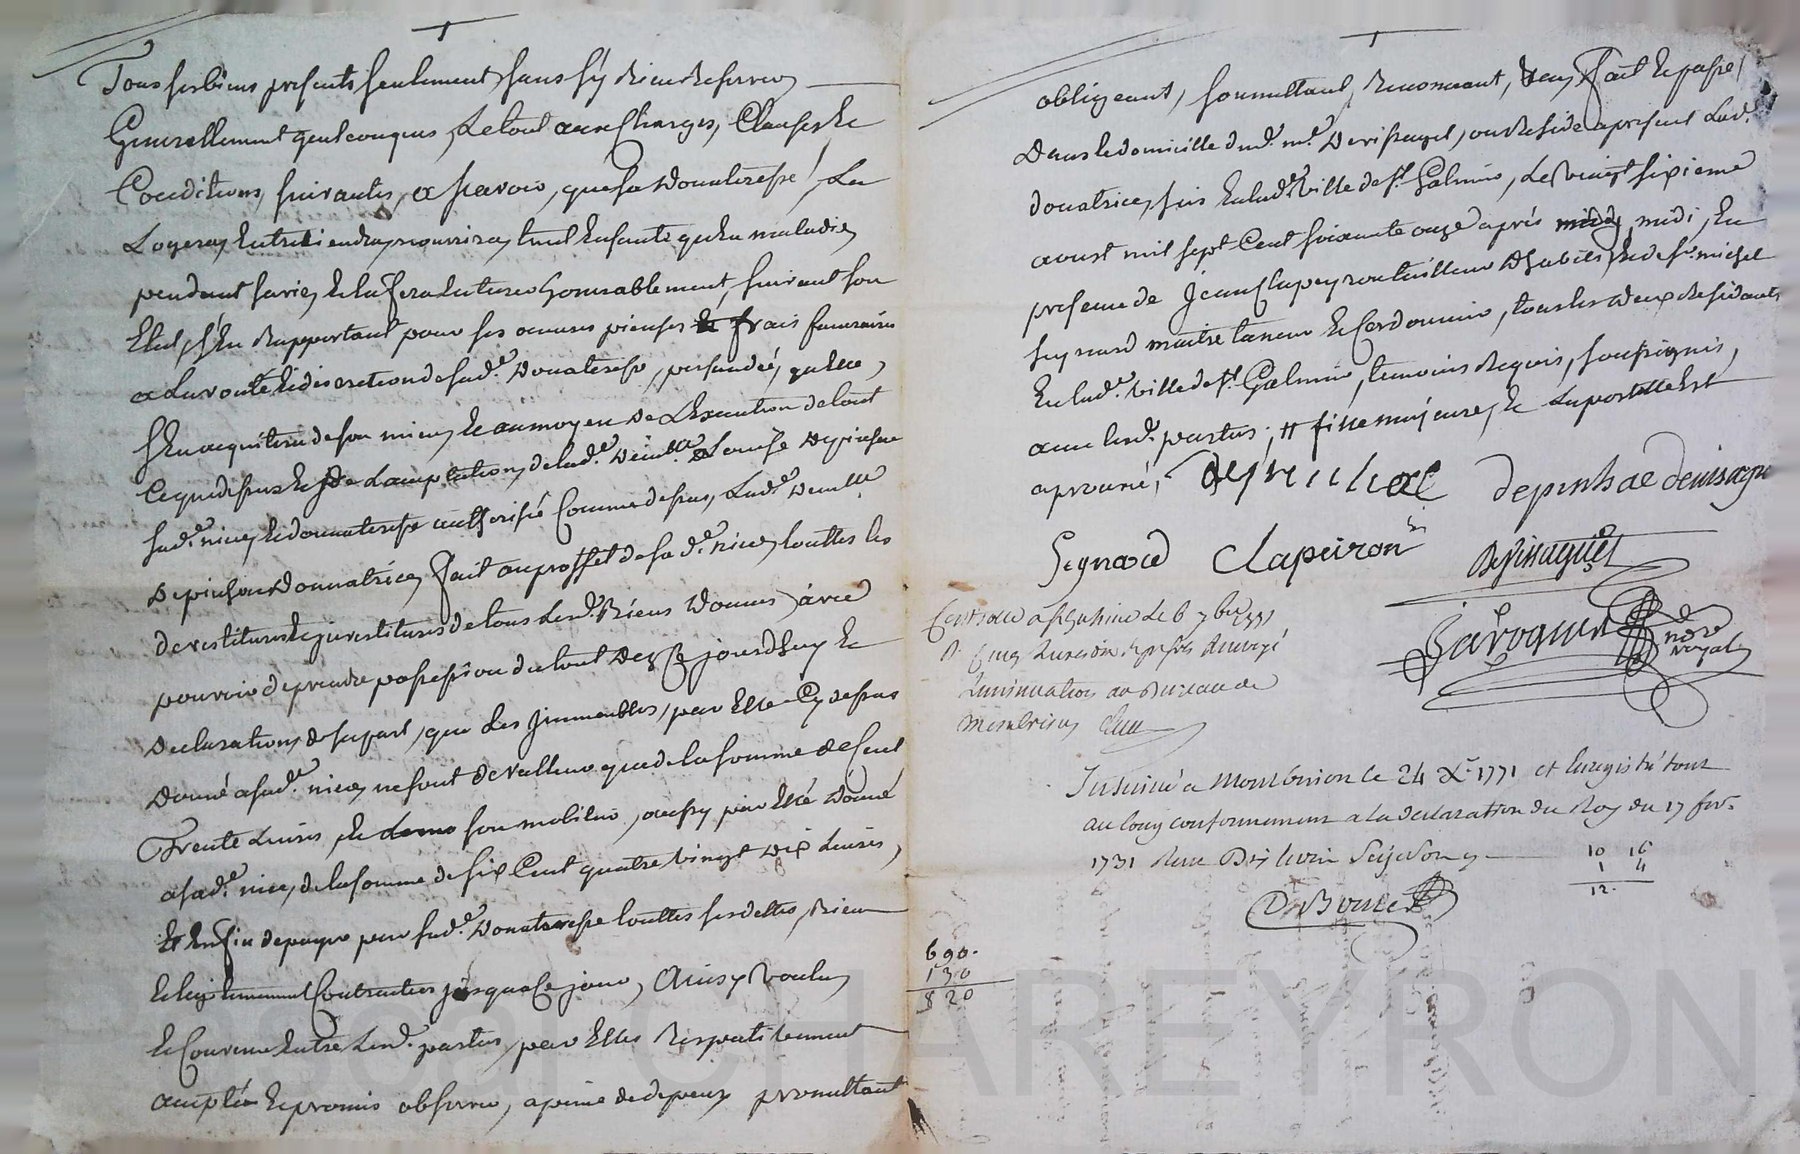 Tous ses biens presents seulement sans s'y Rien Reserver
Generallement quelconques, Le tout aux Charges, Clauses Et
Conditions suivantes, a scavoir, que sa donateresse La
Logera, Entretiendra, nourrira, tant En santé qu'En maladie,
pendant sa vie, Et La fera Enterer honnorablement, suivant son
Etat, s'En Rapportant pour ses œuvres pieuses Et frais funeraires
a La volonté Et discretion de sad.e Donateresse, persuadée, qu'Elle,
s'En acquittera de son mieux, Et au moyen de L'Execution de tout
Ce que dessus Et De L'acceptation de lad.e Demlle Louise Depinhac
sad.e niece Et donnateresse authorisée Comme dessus, Lad.e Demlle
Depinhac Donnatrice, fait au proffet de sa d.e niece, touttes les
devestitures Et investitures de tous Lesd. Biens Donnés avec
pouvoir de prendre possession du tout Dez Ce jourdhuy Et
Declaration de sa part, que Les Immeubles, par Elle Cy dessus
Donné a sad.e niece, ne sont de valleur que de la somme de Cent
Trente Livres, Et son mobilier, aussy par Elle Donné
a sad.e niece, de la somme de six Cent quatre vingt Dix Livres,
Et Enfin de payer par sad.e Donateresse touttes ses dettes, Bien
Et legitimement Contractées jusqua Ce jour, Ainsy Voulu,
Et Convenu Entre Lesd. parties, par Elles Respectivement
accepté Et promis observer, a peine de depens promettant
obligeant, soumettant, Renonceant, &c. fait Et passé
Dans le domicille dud. m.e Devissaguet, ou Reside a present Lad.e
donatrice, sis En lad.e Ville de S.t Galmier, Le Vingt sixieme
aoust mil sept Cent soixante onze après midy midi, En
presence de Jean Clapeyron tailleur D'habits, Et de S.r michel
Seynard maitre taneur Et Cordonnier, tous les Deux Residants
En lad.e Ville de S.t Galmier, temoins Requis, soussignés,
avec lesd. parties; # fille majeure, Et La postille Est
aprouvée, depinhac depinhac devisague
Segnard Clapeiron
Devissaguet
Lavoquer
nore
royal
Controlé a S.t Galmier Le 6 7bre 1771
Linsinuation au Bureau de
Montbrison
Insinué a Montbrison le 24 X.r 1771 et Enregistré tout
au long conformement a La declaration du Roy du 17 fev.r
1731 Recu Dix livres Seize sous
10 16
1 4
12.
690.
130
820
Pascal CHAREYRON